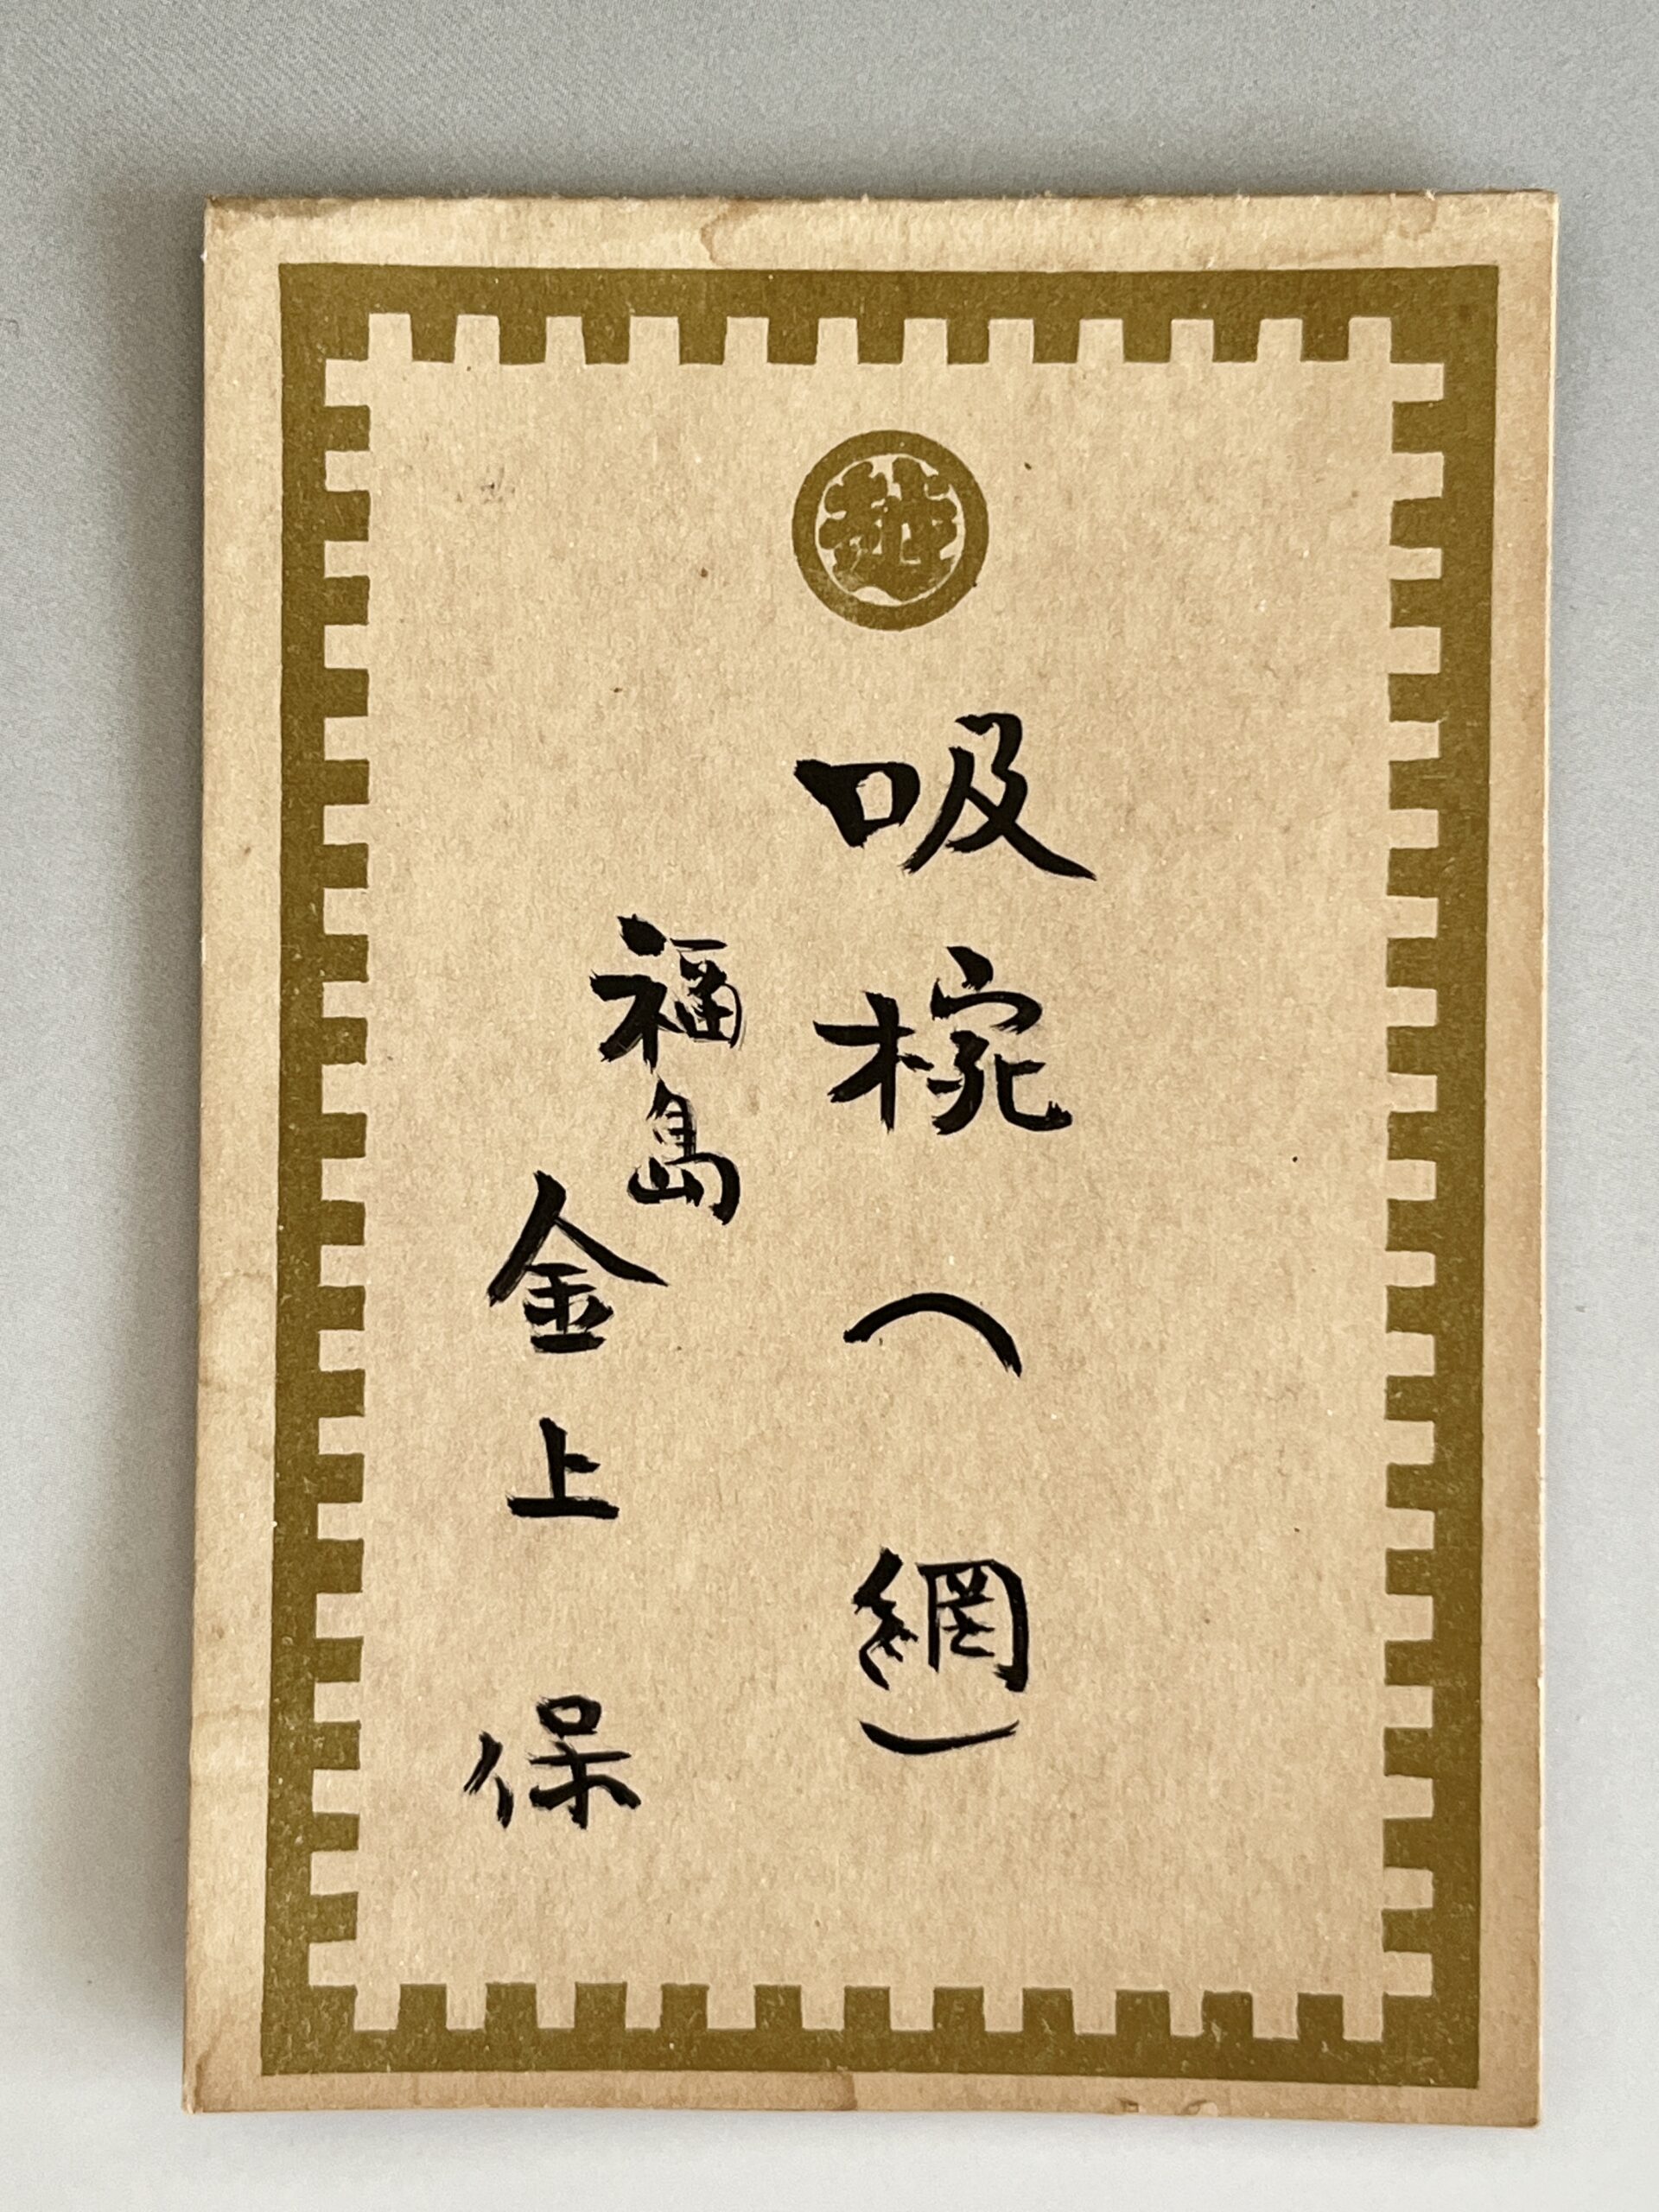 越
吸椀(網)
福島
金上保